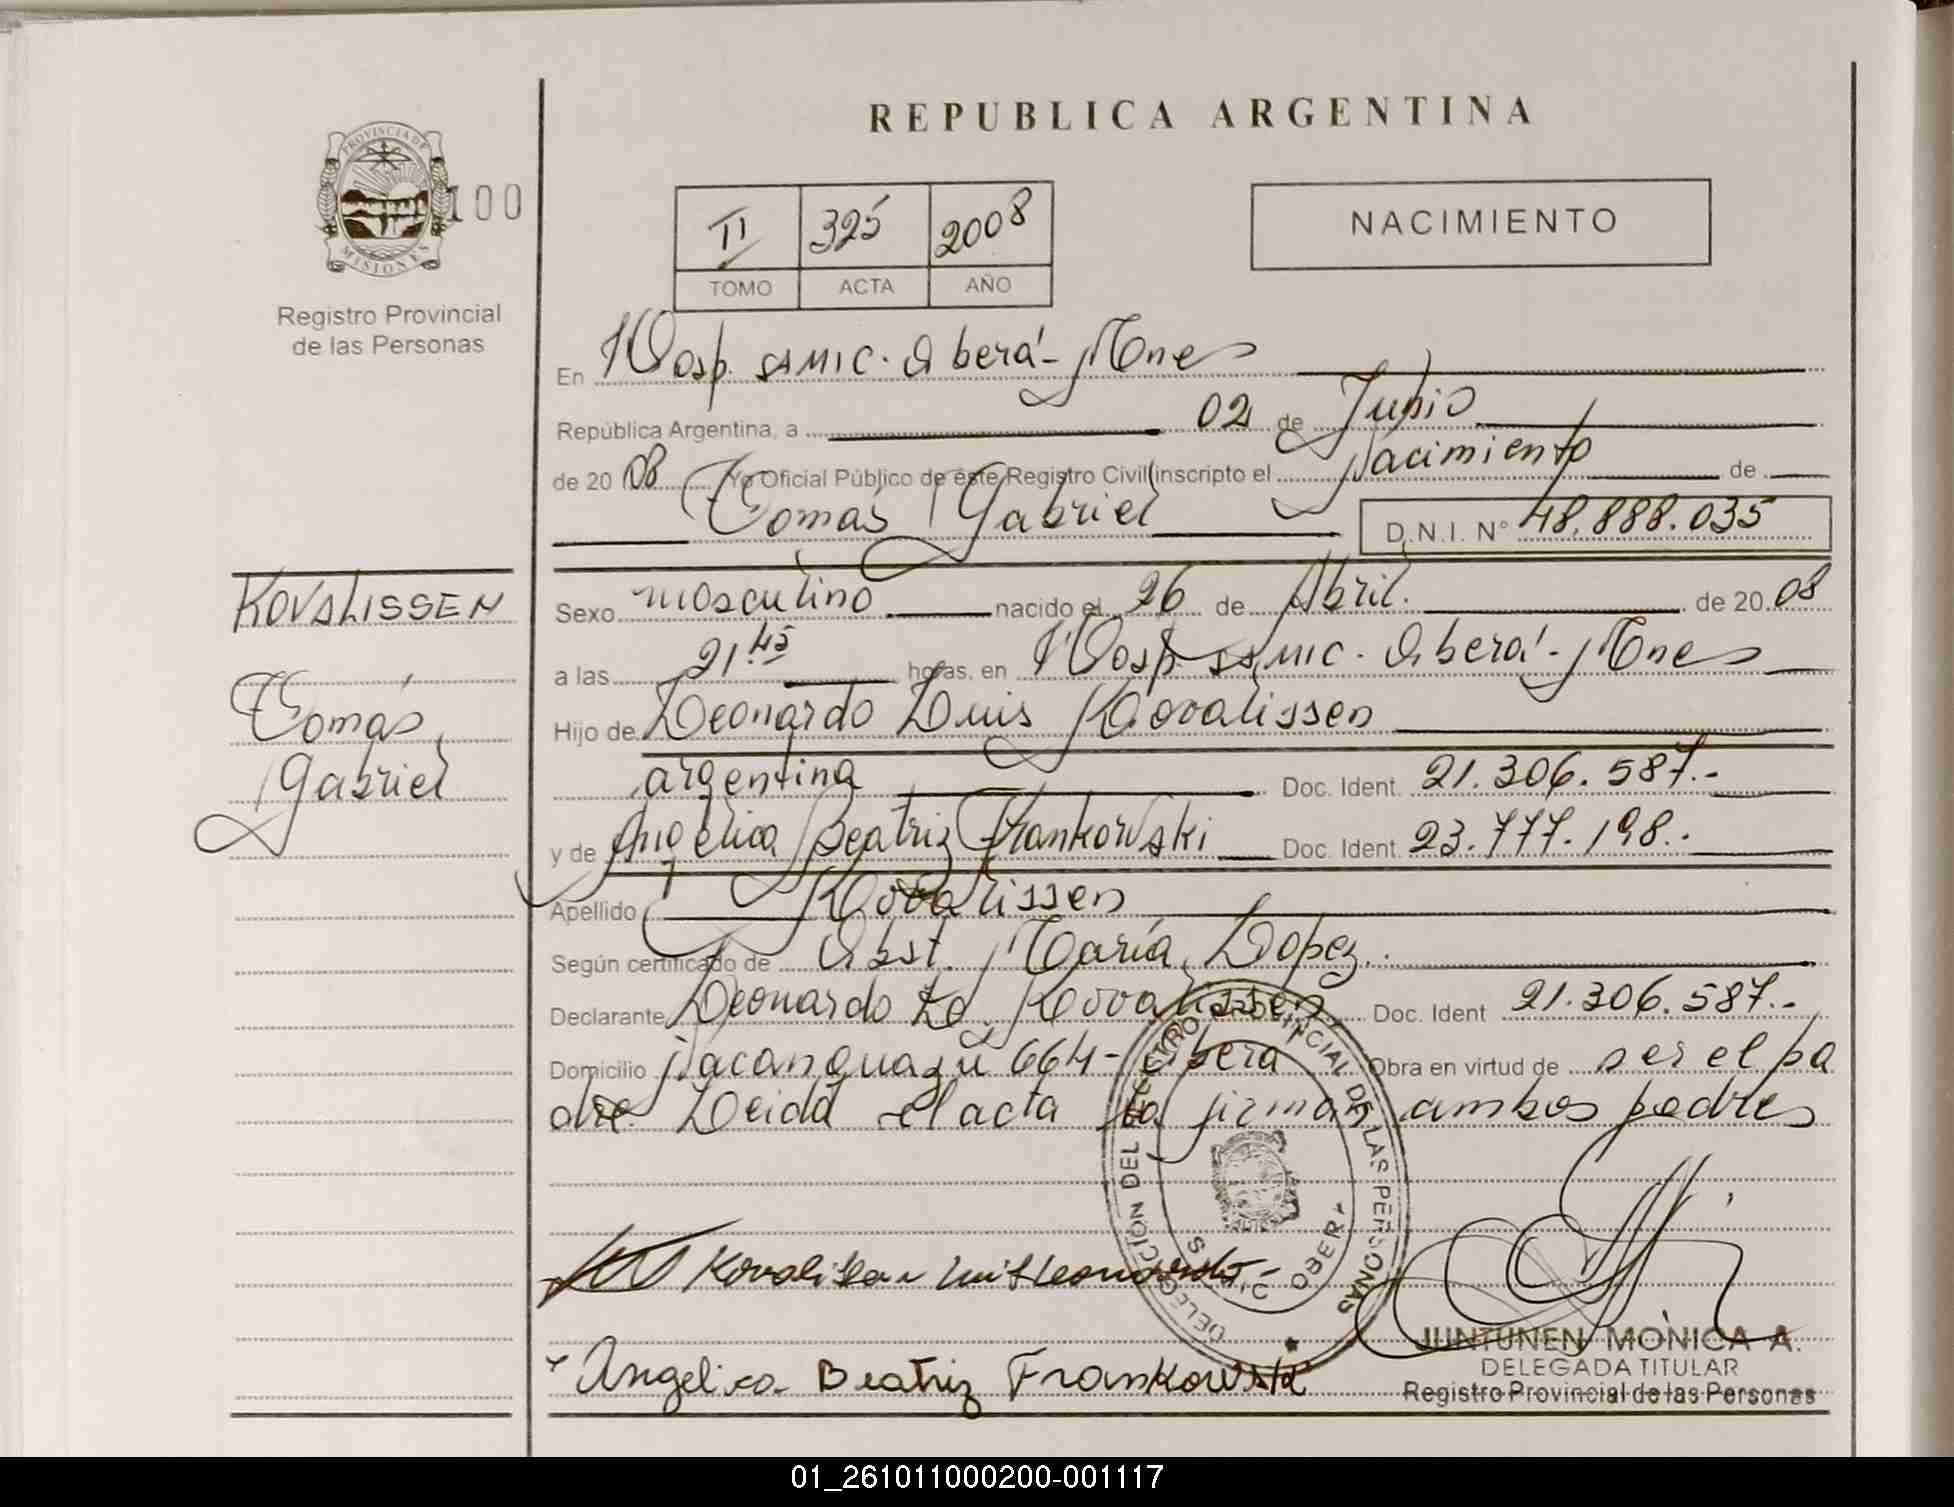 PROVINCIA DE
MISIONES
100
Registro Provincial
de las Personas
REPUBLICA ARGENTINA
II 325 2008
TOMO ACTA AÑO
NACIMIENTO
En Hosp. SAMIC. Oberá - Mnes
República Argentina, a 02 de Junio
de 20 08 Yo Oficial Público de éste Registro Civil inscripto el Nacimiento de
Tomás Gabriel D.N.I. N° 48.888.035
KOVALISSEN
Tomás
Gabriel
Sexo masculino nacido el 26 de Abril. de 20 08
a las 21.45 horas, en Hosp. SAMIC. Oberá - Mnes
Hijo de Leonardo Luis Kovalissen
argentina Doc. Ident. 21.306.587.-
y de Angélica Beatriz Frankowski Doc. Ident. 23.777.198.-
Apellido Kovalissen
Según certificado de Obst. María Lopez.
Declarante Leonardo L. Kovalissen Doc. Ident 21.306.587.-
Domicilio Yacanguazú 664 - Oberá Obra en virtud de ser el pa
dre. Leida el acta la firman ambos padres
DELEGACION DEL REGISTRO PROVINCIAL DE LAS PERSONAS
Kovalissen Luis Leonardo
Angelica Beatriz Frankowski
JUNTUNEN MONICA A.
DELEGADA TITULAR
Registro Provincial de las Personas
01_261011000200-001117